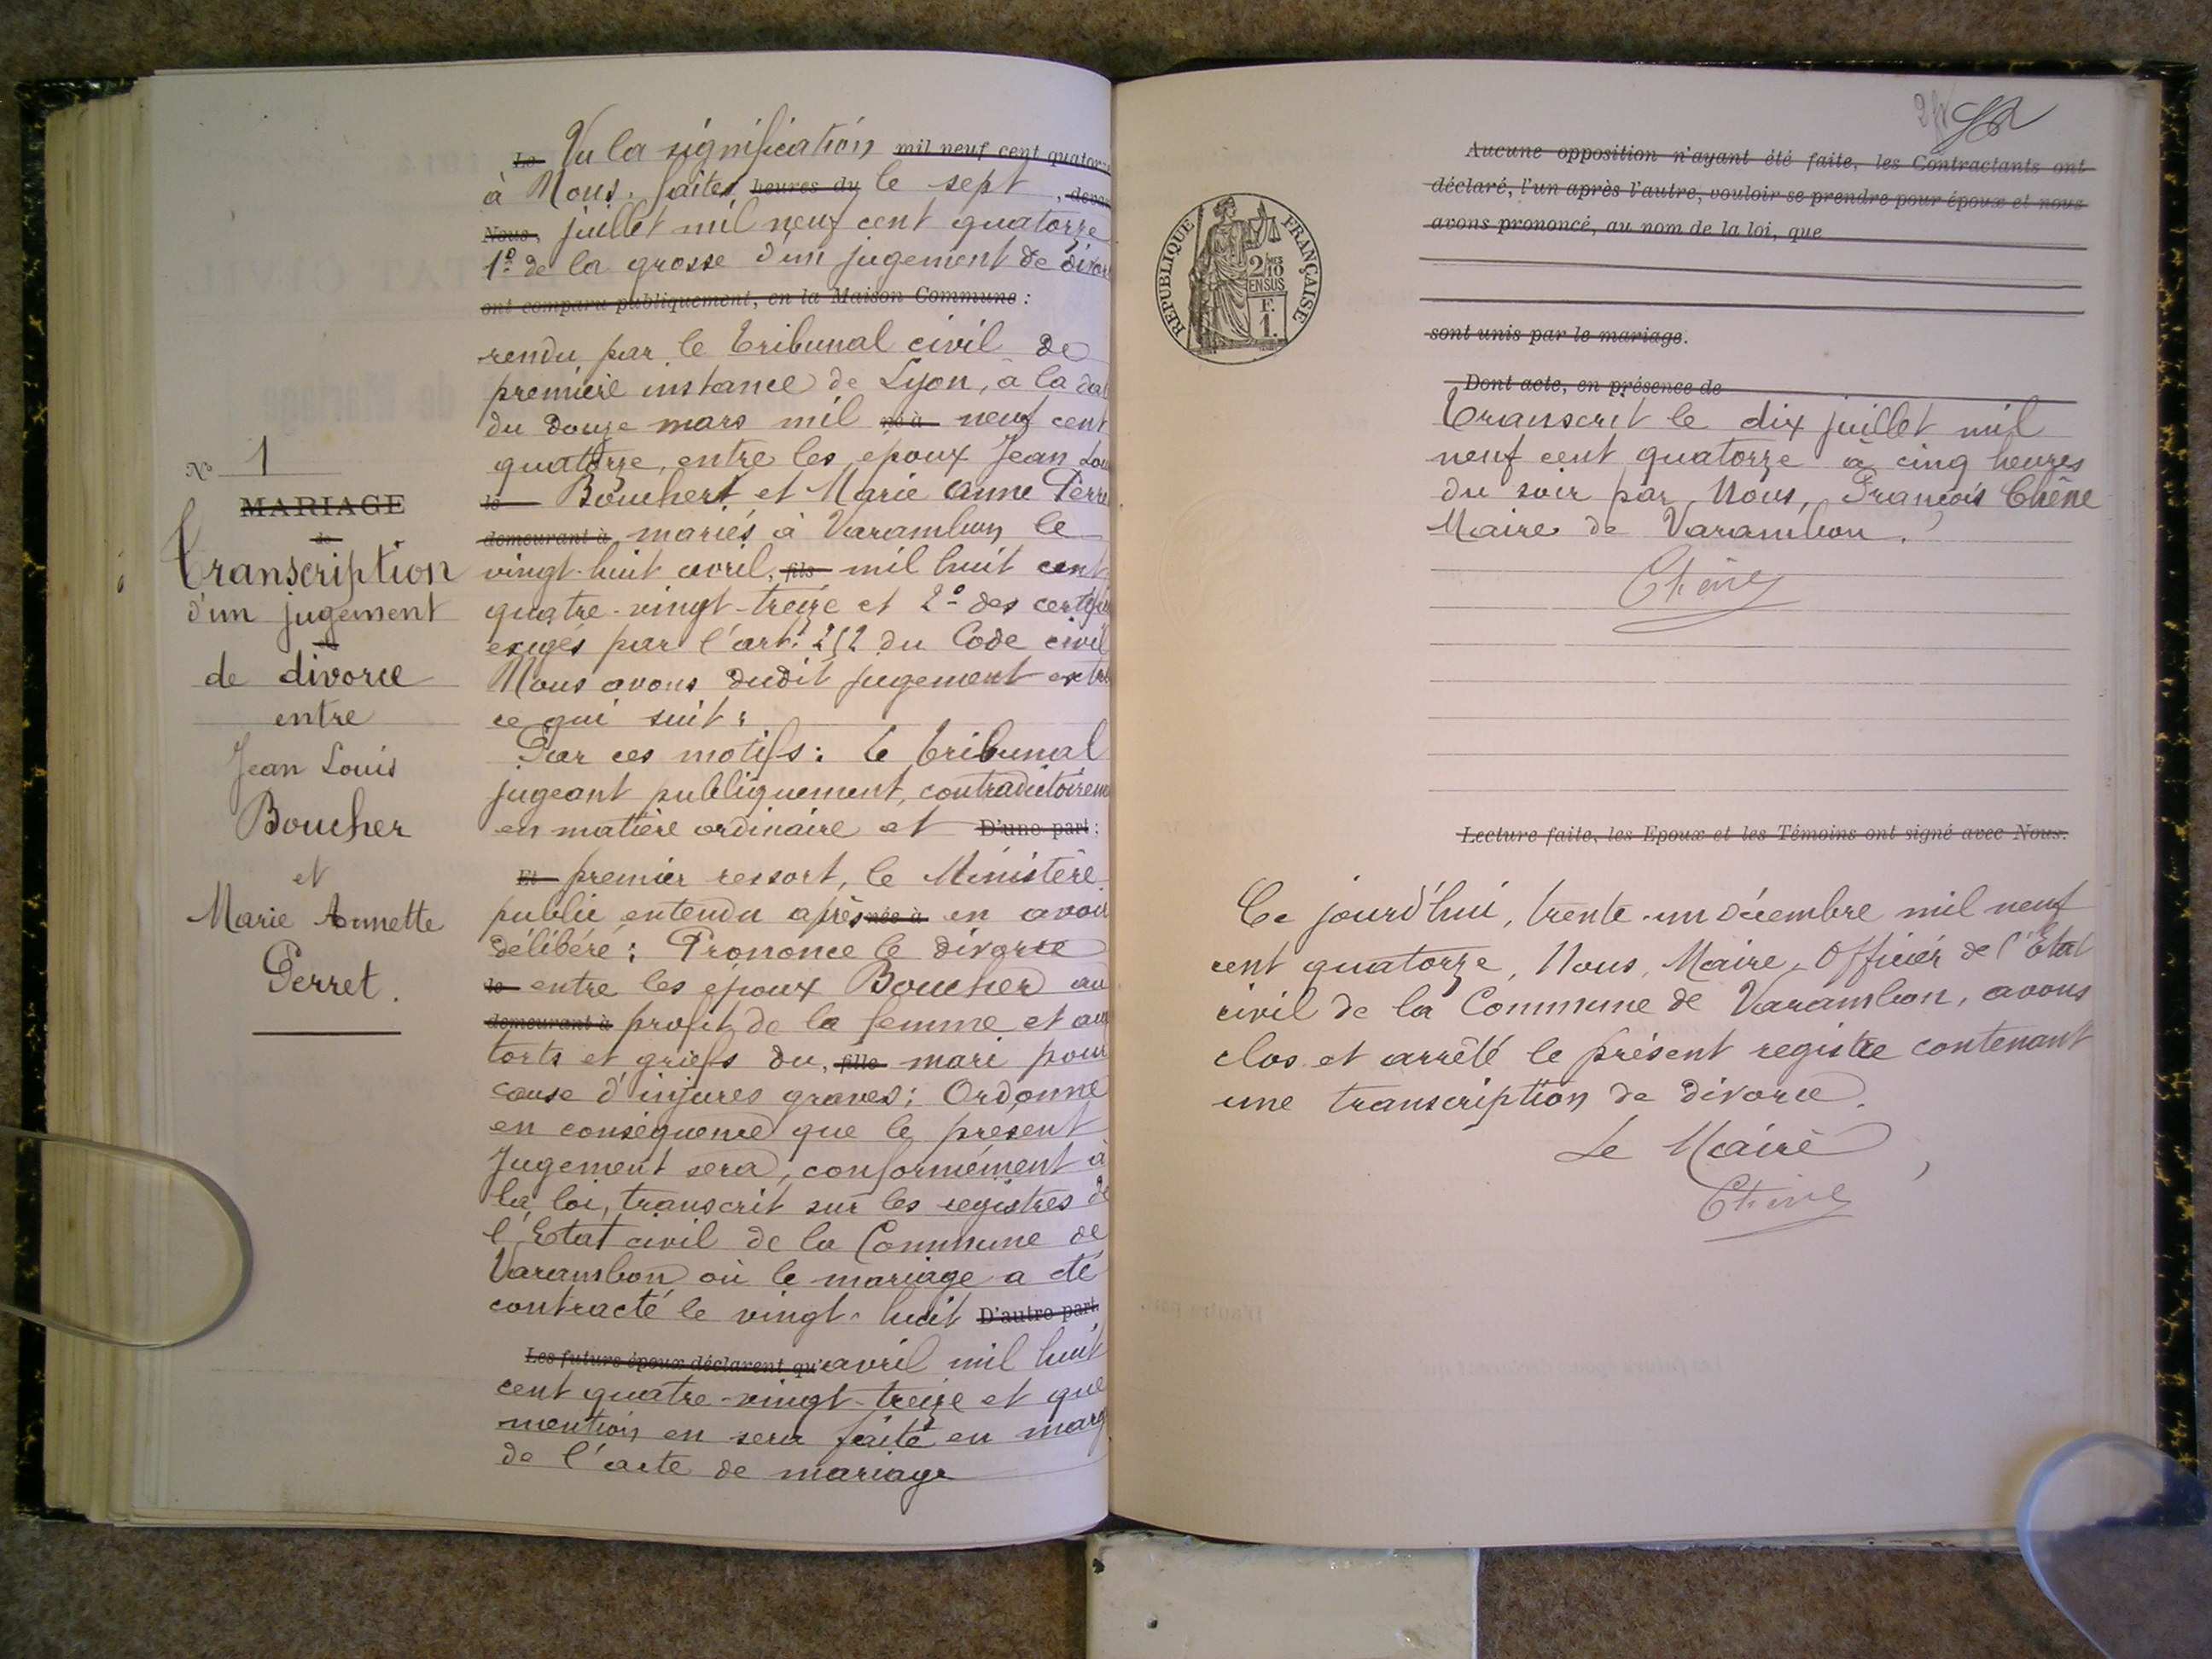 N° 1
MARIAGE
de
Transcription
d'un jugement
et
de divorce
entre
Jean Louis
Boucher
et
Marie Annette
Perret.
Le Vu la signification mil neuf cent quatorze
à Nous. faites heures du le sept, devant
Nous, juillet mil neuf cent quatorze
1° de la grosse d'un jugement de divor
ont comparu publiquement, en la Maison Commune :
rendu par le Tribunal civil de
première instance de Lyon, à la dat
du douze mars mil né à neuf cent
quatorze, entre les époux Jean Lou
le Boucher et et Marie Anne Perre
demeurant à mariés à Varambon le
vingt-huit avril, fils mil huit cent
quatre-vingt-treize et 2° des certifi
exigés par l'art. 252 du Code civil
Nous avons dudit jugement extr
ce qui suit :
Par ces motifs : Le tribunal
jugeant publiquement, contradictoirem
en matière ordinaire et D'une part :
Et premier ressort, le Ministère
public entendu après née à en avoir
délibéré : Prononce le divorce
le entre les époux Boucher au
demeurant à profit de la femme et aux
torts et griefs du, fille mari pour
cause d'injures graves ; Ordonne
en conséquence que le présent
Jugement sera, conformément à
la loi, transcrit sur les registres de
l'Etat civil de la Commune de
Varambon où le mariage a été
contracté le vingt-huit D'autre part.
Les futurs époux déclarent qu' avril mil huit
cent quatre-vingt-treize et que
mention en sera faite en marg
de l'acte de mariage
Aucune opposition n'ayant été faite, les Contractants ont
déclaré, l'un après l'autre, vouloir se prendre pour époux et nous
avons prononcé, au nom de la loi, que
REPUBLIQUE FRANÇAISE
2/10
EN SUS
F.
1.
sont unis par le mariage.
Dont acte, en présence de
Transcrit le dix juillet mil
neuf cent quatorze à cinq heures
du soir par Nous, François Chêne
Maire de Varambon.
Chêne
Lecture faite, les Epoux et les Témoins ont signé avec Nous.
Ce jourd'hui, trente-un décembre mil neuf
cent quatorze, Nous, Maire, Officier de l'État
civil de la Commune de Varambon, avons
clos et arrêté le présent registre contenant
une transcription de divorce.
Le Maire,
Chêne